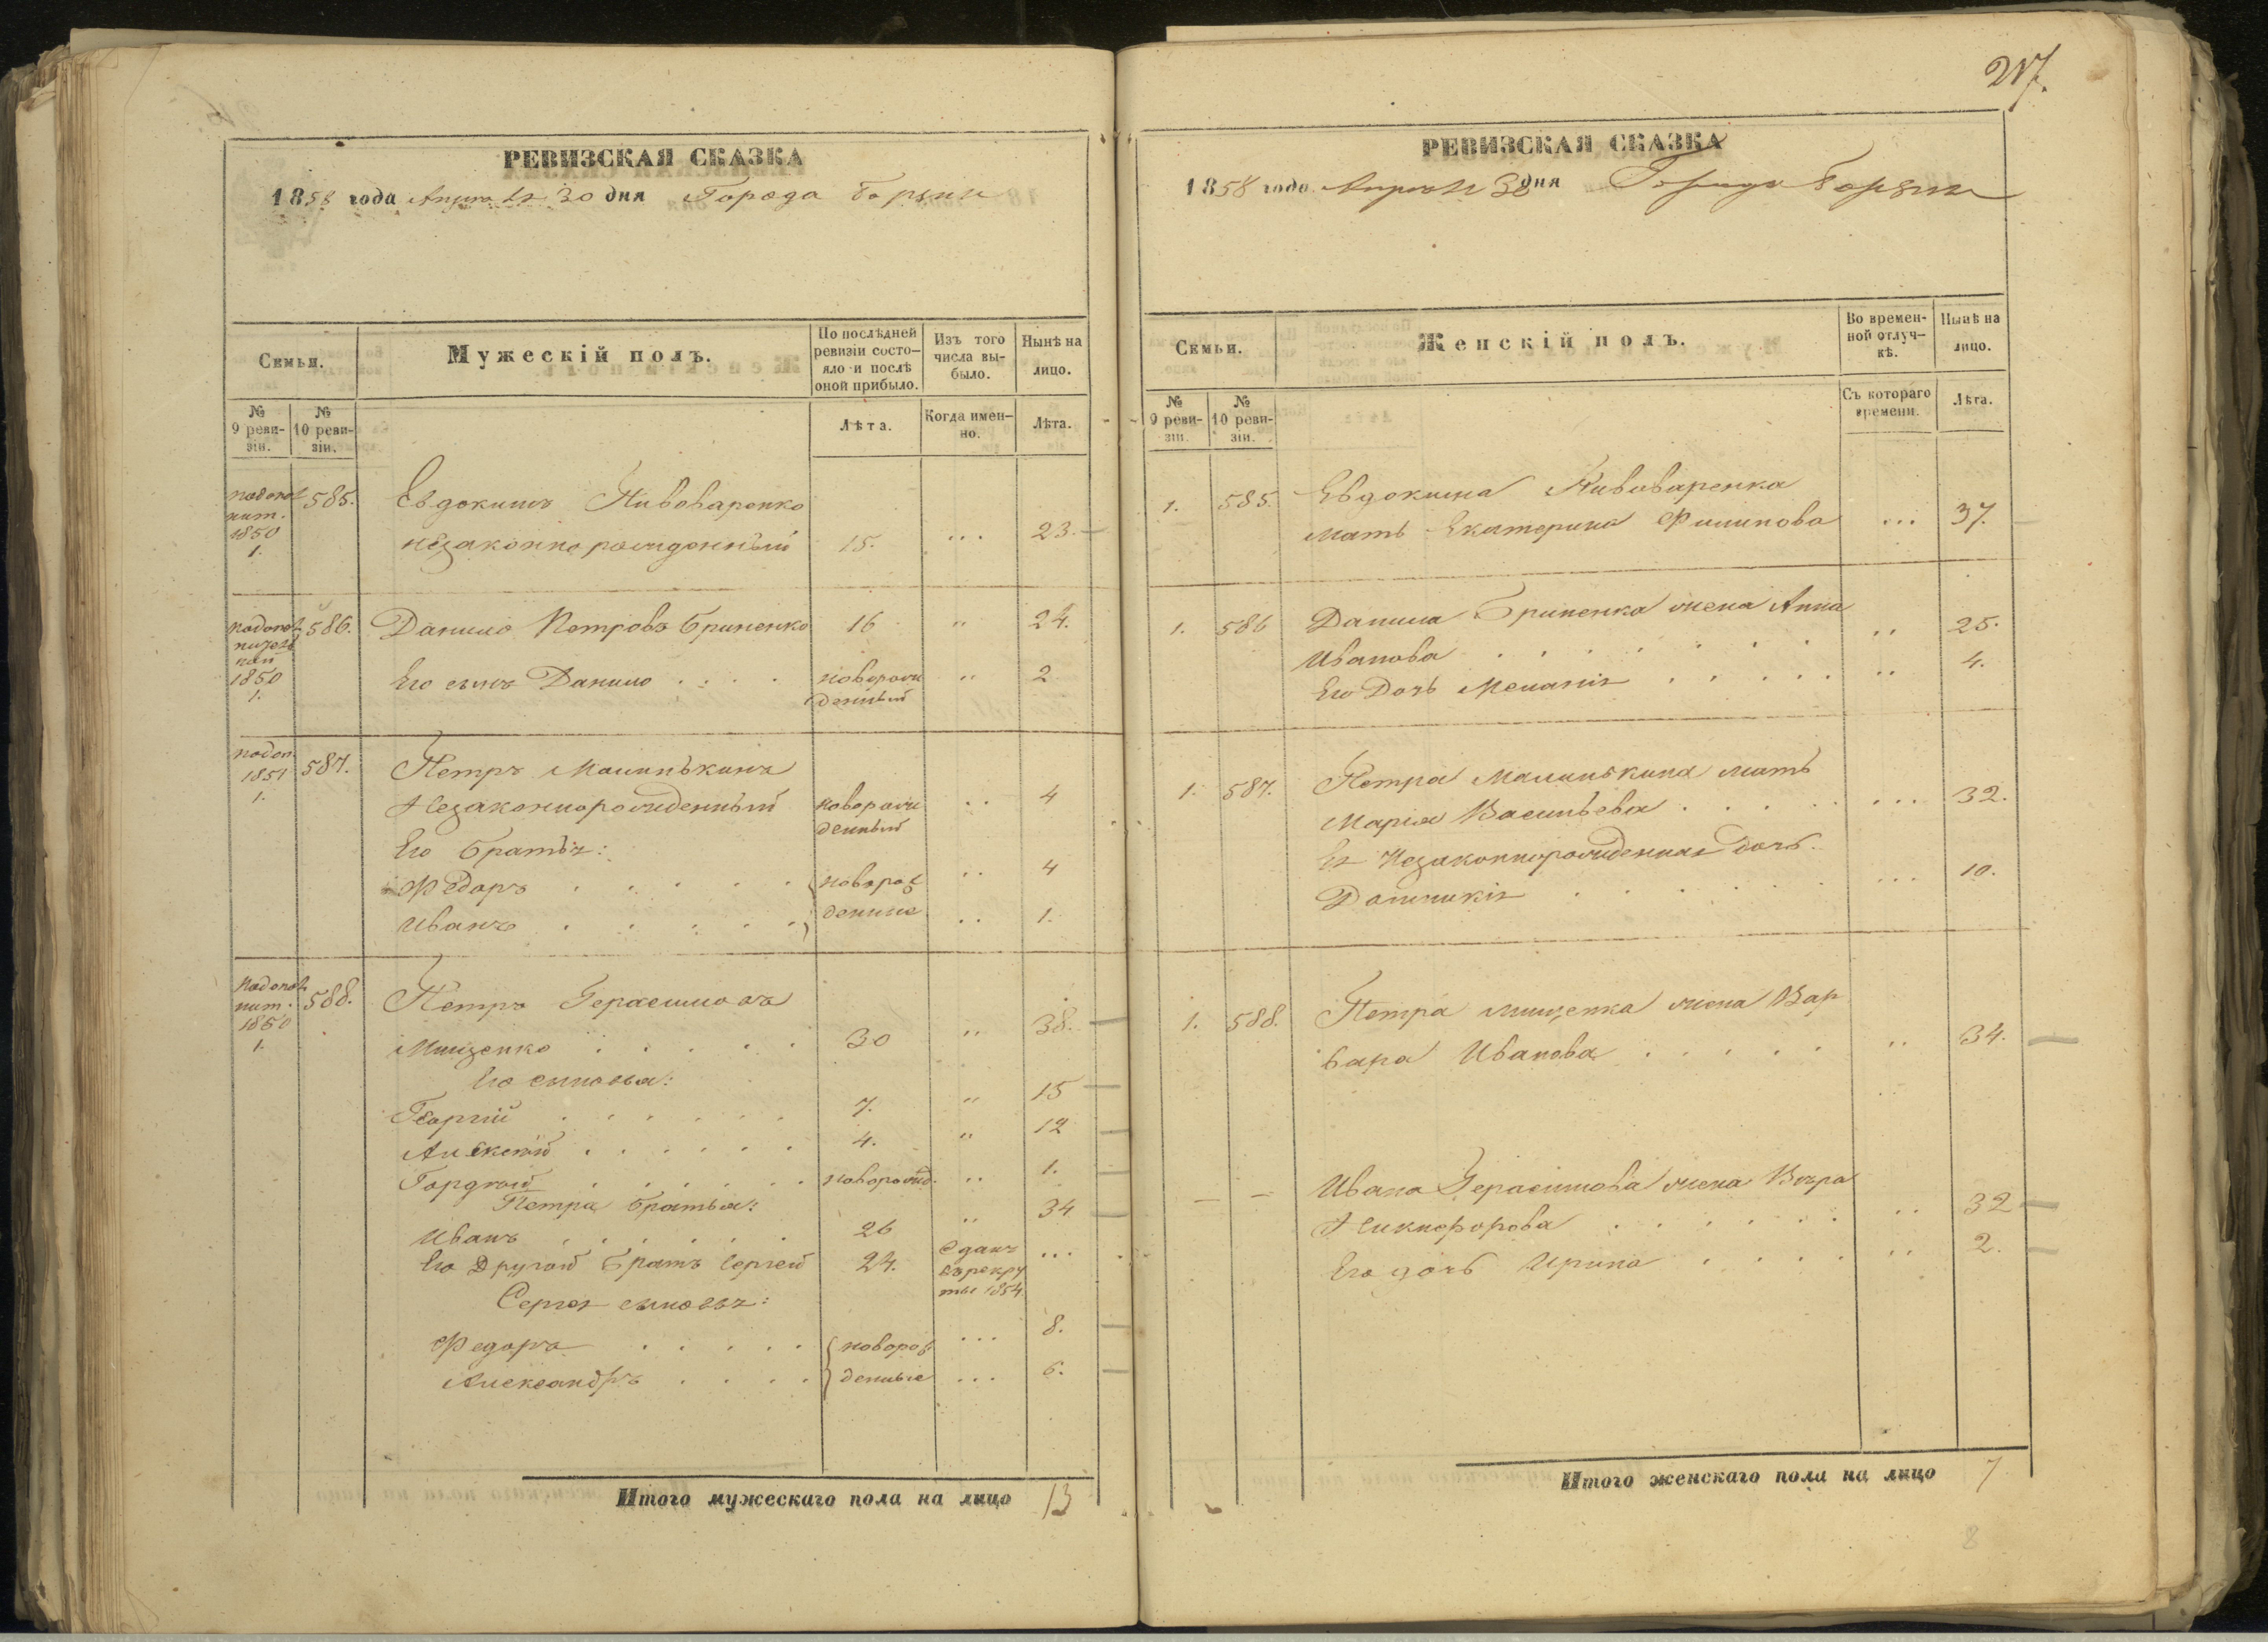 РЕВИЗСКАЯ СКАЗКА
1858 года Апреля 30 дня Города Борзни
Семьи.
Мужескій полъ.
По послѣдней ревизіи состо-
яло и послѣ оной прибыло.
Изъ того числа вы-
было.
Нынѣ на лицо.
№ 9 реви-
зіи.
№ 10 реви-
зіи.
Лѣта.
Когда имен-
но.
Лѣта.
1850
1.
585. Евдокимъ Пивоваренко
незаконно рожденный 15. ... 23.
1850
1.
586. Данило Петровъ Гриненко 16 " 24.
Его сынъ Данило . . . . новорож
денный " 2
1851
1.
587. Петръ Малинькинъ
Незаконнорожденный новорож
денный .. 4
Его братья:
Федоръ . . . . . новорож .. 4
Иванъ . . . . . денные .. 1.
1850
1.
588. Петръ Герасимовъ
Мищенко . . . . . 30 " 38.
Его сыновья:
Георгій . . . . . . 7. " 15
Алексей . . . . . . 4. " 12
Гордей . . . . . . новорожд. .. 1.
Петра братья:
Иванъ . . . . . . 26 " 34
Его Другой братъ Сергей 24. Сданъ
въ рекру
ты 1854. ...
Сергея сыновья:
Федоръ . . . . . новорож ... 8.
Александръ . . . . денные ... 6.
Итого мужескаго пола на лицо 13
217.
РЕВИЗСКАЯ СКАЗКА
1858 года Апреля 30 дня Города Борзни
Семьи.
Женскій полъ.
Во времен-
ной отлуч-
кѣ.
Нынѣ на лицо.
№ 9 реви-
зіи.
№ 10 реви-
зіи.
Съ котораго времени.
Лѣта.
1. 585. Евдокима Пивоваренка
мать Екатерина Филипова ... 37.
1. 586 Данила Гриненка жена Анна
Иванова . . . . . . . .. 25.
Его Дочь Меланія . . . . . .. 4.
1. 587. Петра Малинькина мать
Марія Васильева . . . . . ... 32.
Ея Незаконнорожденная дочь
Домникія . . . . . . ... 10.
1. 588. Петра Мищенка жена Вар
вара Иванова . . . . . .. 34.
— — Ивана Герасимова жена Вера
Никифорова . . . . . . .. 32
Его дочь Ирина . . . . .. 2.
Итого женскаго пола на лицо 7
8